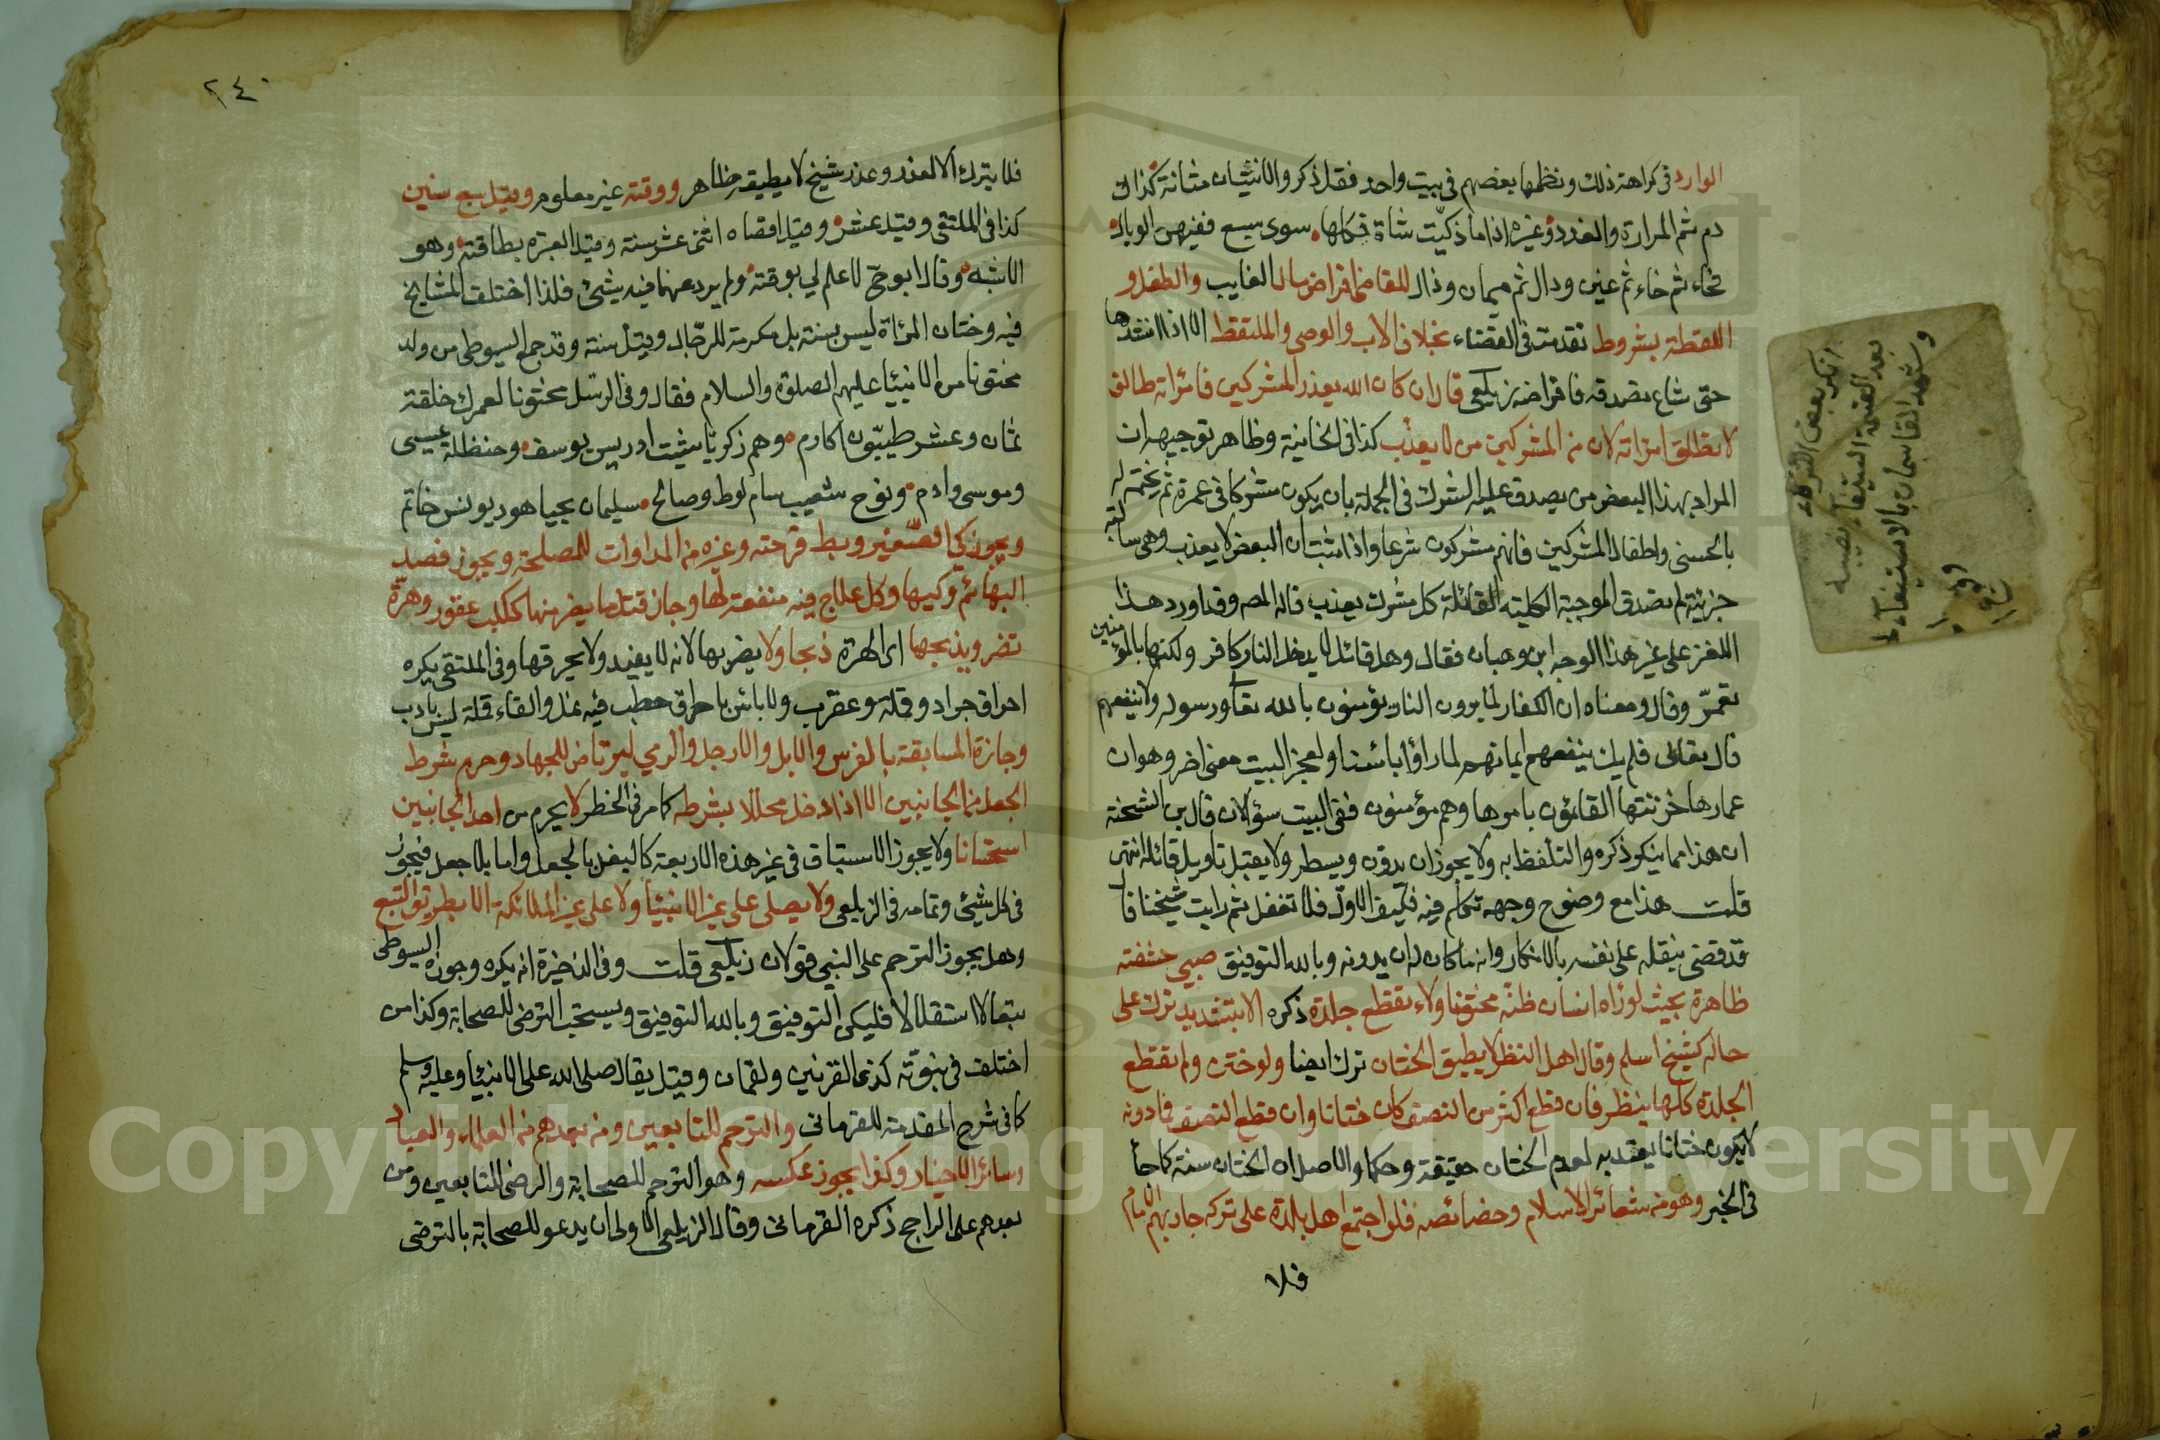 الوارد في كراهة ذلك ونظمها بعضهم في بيت واحد فقل ذكر والانثيان مثانة كذاك
دم ثم المرارة والغدد وغيره اذا ما ذكيت شاة فكلها سوى سبع ففيهن الوبال
فحاء ثم خاء ثم غين ودال ثم ميمان وذال للقاضي اقراض مال الغايب والطفل و
اللقطة بشروط تقدمت في القضاء بخلاف الاب والوصي والملتقط الا اذا انشدها
حتى شاع تصدقه فاقراضه زيلعي قال ان كان الله يعذب المشركين فامراته طالق
لا تطلق امراته لان من المشركين من لا يعذب كذا في الخانية وظاهر توجيهه ان
المراد بهذا البعض من يصدق عليه الشرك في الجملة بان يكون مشركا في عمره ثم يختم له
بالحسنى واطفال المشركين فانهم مشركون شرعا واذا ثبت ان البعض لا يعذب وهي سالبة
جزئية لم تصدق الموجبة الكلية القائلة كل مشرك يعذب قاله المص وقد اورد هذا
اللغز على غير هذا الوجه ابن وهبان فقال وهل قائل لا يدخل النار كافر ولكنها بالمومنين
تعمر وقال ومعناه ان الكفار لما يرون النار يؤمنون بالله تعا ورسوله ولا ينفعهم
قال تعالى فلم يك ينفعهم ايمانهم لما راوا باسنا ولعجز البيت معنى اخر وهو ان
عمارها خزنتها القائمون بامورها وهم مؤمنون ففي البيت سؤالان قال بن الشحنة
ان هذا مما ينكر ذكره والتلفظ به ولا يجوز ان يدون ويسطر ولا يقبل تاويل قائله انتهى
قلت هذا مع وضوح وجهه تكلم فيه فكيف الاول فلا تغفل ثم رايت شيخنا قال
قد قضى بنقله على نفسه بالانكار وانه ما كان له ان يدونه وبالله التوفيق صبي حشفته
ظاهرة بحيث لو راه انسان ظنه مختونا ولا تقطع جلدة ذكره الا بتشديد ترك على
حاله كشيخ اسلم وقال اهل النظر لا يطيق الختان ترك ايضا ولو ختن ولم تقطع
الجلدة كلها ينظر فان قطع اكثر من النصف كان ختانا وان قطع النصف فما دونه
لا يكون ختانا يعتد به لعدم الختان حقيقة وحكما والاصل ان الختان سنة كما جا
في الخبر وهو من شعائر الاسلام وخصائصه فلو اجتمع اهل بلدة على تركه حاربهم الامام
فلا
انكر بعض الشركاء
بعد القسمة استيفاء نصيبه
وشهد القاسمان بالاستيفاء
٢٤٠
فلا يترك الا لعذر وعذر شيخ لا يطيقه ظاهر ووقته غير معلوم وقيل سبع سنين
كذا في الملتقى وقيل عشر وقيل اقصاه اثنى عشر سنة وقيل العبرة بطاقته وهو
الاشبه وقال ابو ح لا علم لي بوقته ولم يرد عنهما فيه شيئ فلذا اختلف المشايخ
فيه وختان المراة ليس سنة بل مكرمة للرجال وقيل سنة وقد جمع السيوطي من ولد
مختونا من الانبيا عليهم الصلوة والسلام فقال وفي الرسل مختونا لعمرك خلقة
ثمان وعشر طيبون اكارم وهم ذكريا شيث ادريس يوسف وحنظلة عيسى
وموسى وادم ونوح شعيب سام لوط وصالح سليمان يحيا هود يونس خاتم
ويجوز كي الصغير وبط قرحته وغيره من المداوات للمصلحة ويجوز فصد
البهائم وكيها وكل علاج فيه منفعة لها وجاز قتل ما يضر منها ككلب عقور وهرة
تضر ويذبحها اي الهرة ذبحا ولا يضربها لانه لا يفيد ولا يحرقها وفي الملتقى يكره
احراق جراد وقملة وعقرب ولا باس باحراق حطب فيه نمل والقاء قملة ليس بادب
وجازة المسابقة بالفرس والابل والارجل والرمي ليرتاض للجهاد وحرم شرط
الجعل من الجانبين الا اذا ادخل محللا بشرطه كما مر في الحظر لا يحرم من احد الجانبين
استحسانا ولا يجوز الاستباق في غير هذه الاربعة كالبغل بالجعل واما بلا جعل فيجوز
في كل شيئ وتمامه في الزيلعي ولا يصلى على غير الانبيا ولا على غير الملائكة الا بطريق التبع
وهل يجوز الترحم على النبي قولان زيلعي قلت وفي الذخيرة انه يكره وجوزه السيوطي
تبعا لا استقلالا فليكن التوفيق وبالله التوفيق ويستحب الترضي للصحابة وكذا من
اختلف في نبوته كذي القرنين ولقمان وقيل يقال صلى الله على الانبيا وعليه وسلم
كما في شرح المقدمة للقرماني والترحم للتابعين ومن بعدهم من العلماء والعباد
وسائر الاخيار وكذا يجوز عكسه وهو الترحم للصحابة والرضى للتابعين ومن
بعدهم على الراجح ذكره القرماني وقال الزيلعي الاولى ان يدعو للصحابة بالترضي
Copyright © King Saud University